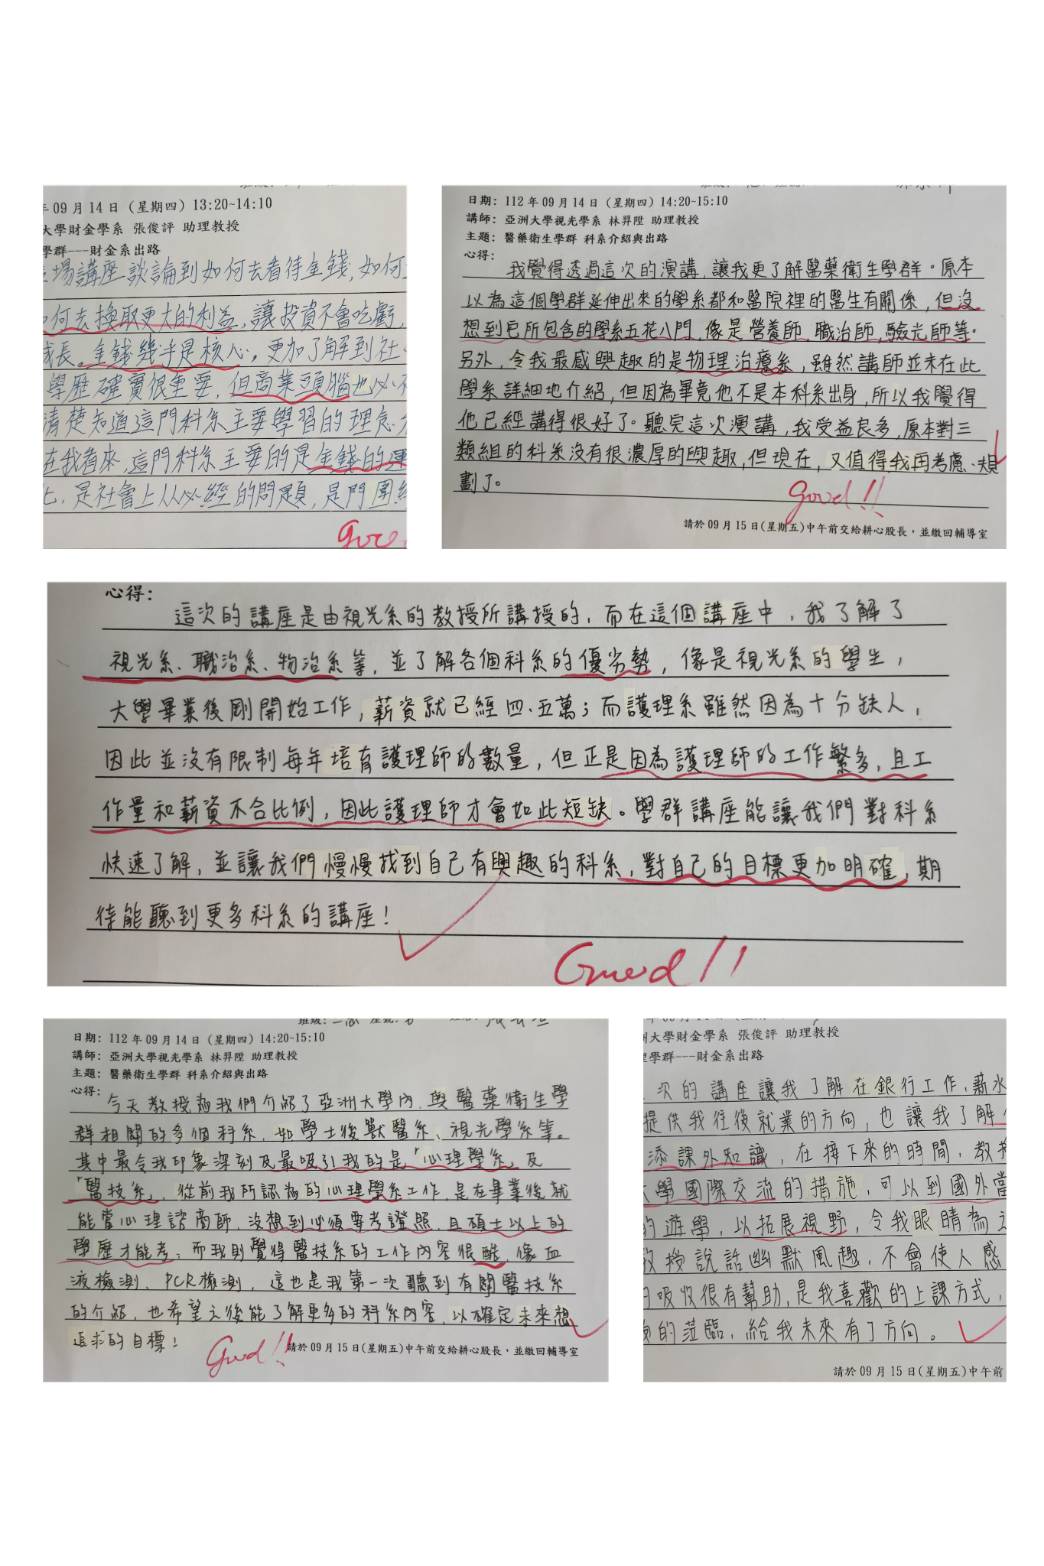 年 09 月 14 日 (星期四) 13:20~14:10
大學財金學系 張俊評 助理教授
學群---財金系出路
場講座談論到如何去看待金錢,如何
何去換取更大的利益,讓投資不會吃虧,
成長。金錢幾乎是核心,更加了解到社
學歷確實很重要,但商業頭腦也必不
清楚知道這門科系主要學習的理念
在我看來,這門科系主要的是金錢的運
是社會上 的問題,是門
日期: 112 年 09 月 14 日 (星期四) 14:20~15:10
講師: 亞洲大學視光學系 林昇陞 助理教授
主題: 醫藥衛生學群 科系介紹與出路
心得:
我覺得透過這次的演講,讓我更了解醫藥衛生學群。原本
以為這個學群延伸出來的學系都和醫院裡的醫生有關係,但沒
想到它所包含的學系五花八門,像是營養師、職治師、驗光師等。
另外,令我最感興趣的是物理治療系,雖然講師並未在此
學系詳細地介紹,但因為畢竟他不是本科系出身,所以我覺得
他已經講得很好了。聽完這次演講,我受益良多,原本對三
類組的科系沒有很濃厚的興趣,但現在,又值得我再考慮、規
劃了。
good!!
請於 09 月 15 日(星期五)中午前交給耕心股長,並繳回輔導室
心得:
這次的講座是由視光系的教授所講授的,而在這個講座中,我了解了
視光系、職治系、物治系等,並了解各個科系的優劣勢,像是視光系的學生,
大學畢業後剛開始工作,薪資就已經四、五萬;而護理系雖然因為十分缺人,
因此並沒有限制每年培育護理師的數量,但正是因為護理師的工作繁多,且工
作量和薪資不合比例,因此護理師才會如此短缺。學群講座能讓我們對科系
快速了解,並讓我們慢慢找到自己有興趣的科系,對自己的目標更加明確,期
待能聽到更多科系的講座!
Good!!
日期: 112 年 09 月 14 日 (星期四) 14:20~15:10
講師: 亞洲大學視光學系 林昇陞 助理教授
主題: 醫藥衛生學群 科系介紹與出路
心得:
今天教授為我們介紹了亞洲大學內,與醫藥衛生學
群相關的多個科系,如學士後獸醫系、視光學系等。
其中最令我印象深刻及最吸引我的是「心理學系」及
「醫技系」,從前我所認為的心理學系工作,是在畢業後就
能當心理諮商師,沒想到必須要考證照,且碩士以上的
學歷才能考;而我則覺得醫技系的工作內容很酷,像血
液檢測、PCR檢測,這也是我第一次聽到有關醫技系
的介紹,也希望之後能了解更多的科系內容,以確定未來想
追求的目標!
Good!!
請於 09 月 15 日(星期五)中午前交給耕心股長,並繳回輔導室
大學財金學系 張俊評 助理教授
學群---財金系出路
次的講座讓我了解在銀行工作,薪水
提供我往後就業的方向,也讓我了解
添課外知識,在接下來的時間,教授
大學國際交流的措施,可以到國外當
的遊學,以拓展視野,令我眼睛為之
教授說話幽默風趣,不會使人感
吸收很有幫助,是我喜歡的上課方式,
的蒞臨,給我未來有了方向。
請於 09 月 15 日(星期五)中午前